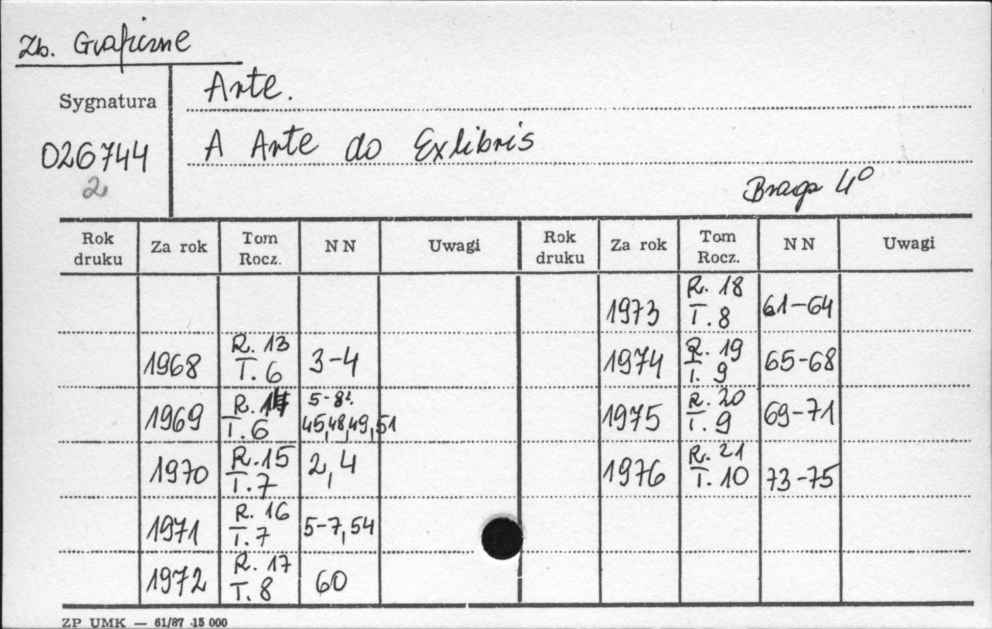 Zb. Graficzne
Sygnatura
026744
2
Arte.
A Arte do Exlibris
Braga 4°
Rok druku | Za rok | Tom Rocz. | NN | Uwagi | Rok druku | Za rok | Tom Rocz. | NN | Uwagi
1973 | R. 18 T. 8 | 61-64
1968 | R. 13 T. 6 | 3-4 | 1974 | R. 19 T. 9 | 65-68
1969 | R. 14 T. 6 | 45,48,49,51 | 1975 | R. 20 T. 9 | 69-71
1970 | R. 15 T. 7 | 2, 4 | 1976 | R. 21 T. 10 | 73-75
1971 | R. 16 T. 7 | 5-7, 54
1972 | R. 17 T. 8 | 60
ZP UMK — 61/87 15 000